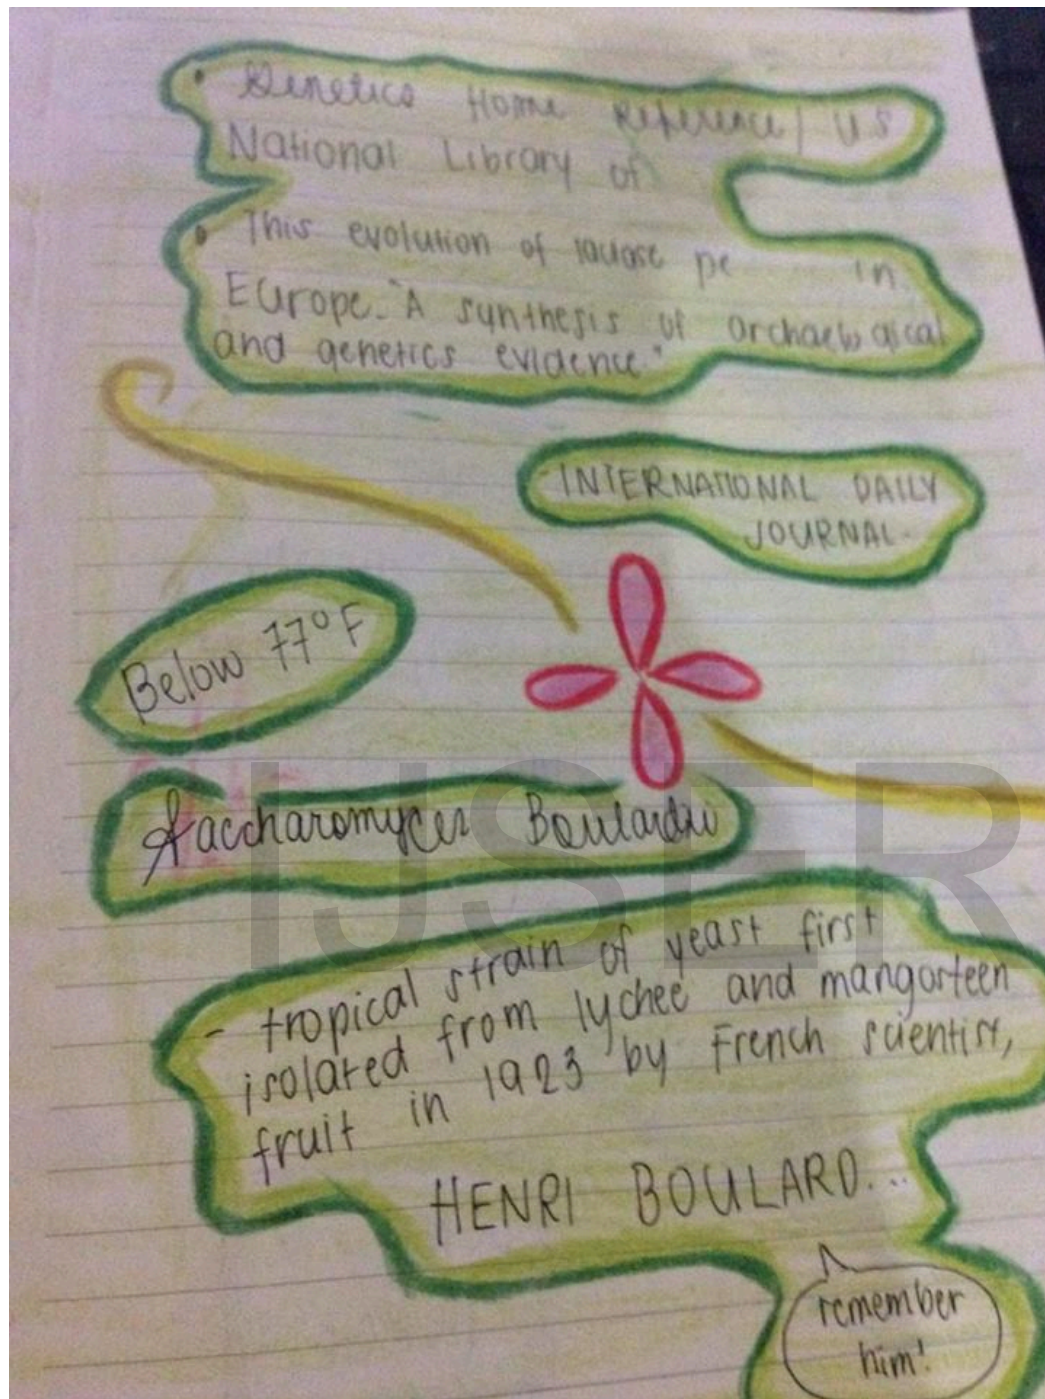 • Genetics Home Reference/ US
National Library of
• This evolution of lactase pe in
Europe. "A synthesis of archaelogical
and genetics evidence."
- INTERNATIONAL DAILY
JOURNAL.
Below 77°F
Saccharomyces Boulardii
- tropical strain of yeast first
isolated from lychee and mangosteen
fruit in 1923 by French scientist,
HENRI BOULARD...
remember
him!
IJSER